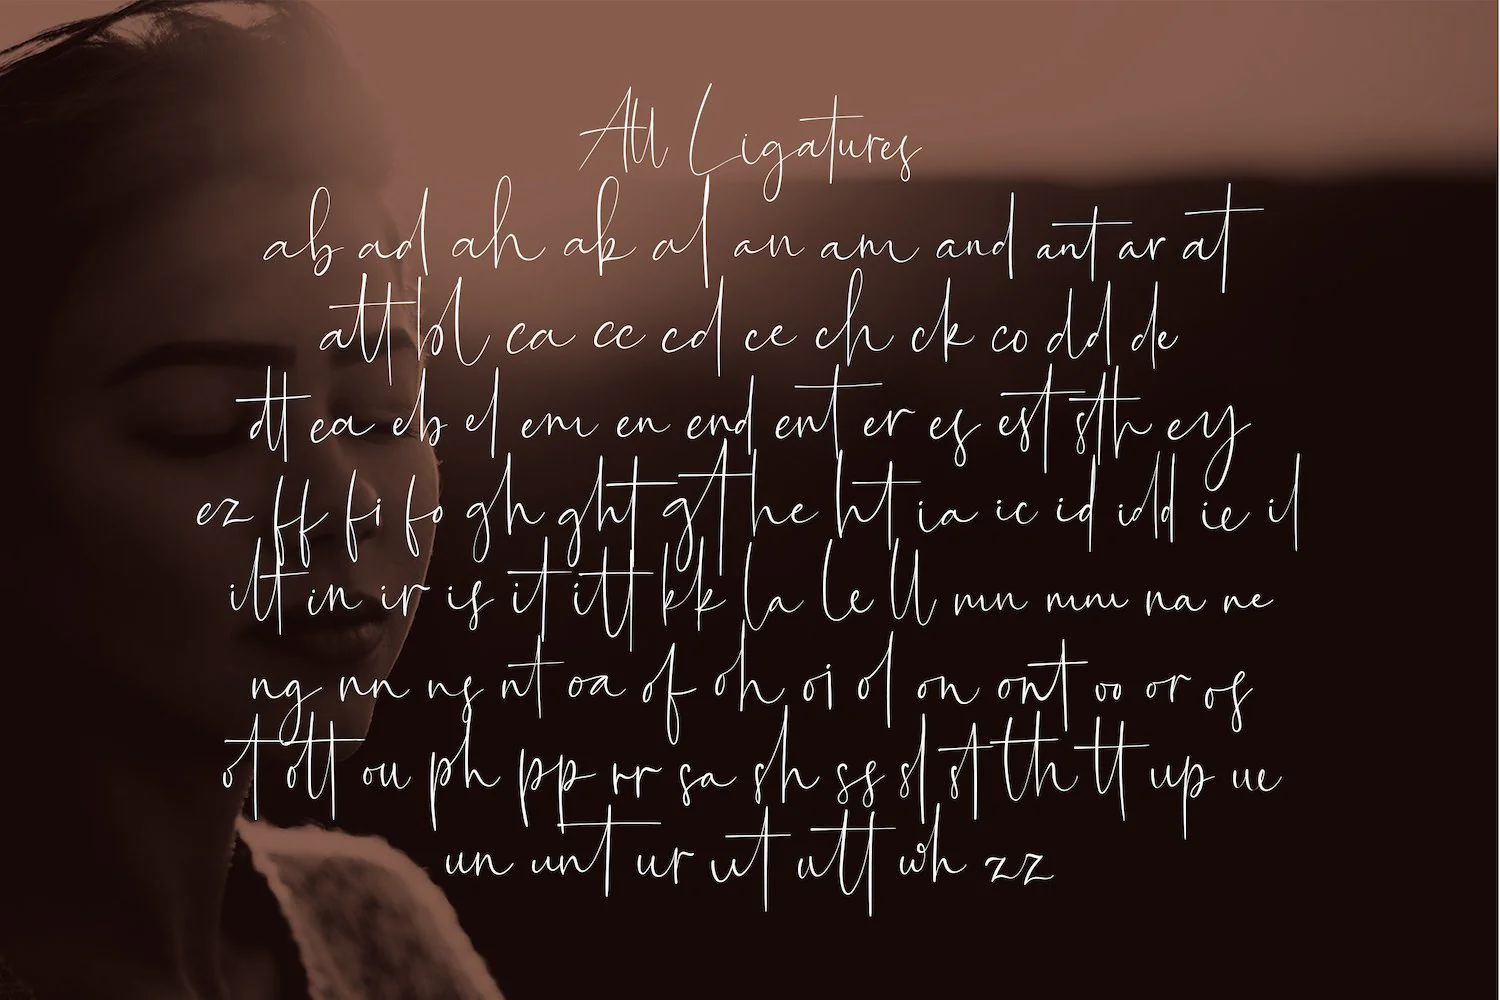 All Ligatures
ab ad ah ak al an am and ant ar at
att bl ca cc cd ce ch ck co dd de
dt ea eb el em en end ent er es est sth ey
ez ff fi fo gh ght gt he ht ia ic id idd ie il
ilt in ir is it itt kk la le ll mn mm na ne
ng nn ns nt oa of oh oi ol on ont oo or os
ot ott ou ph pp rr sa sh ss sl st th tt up ue
un unt ur ut utt wh zz